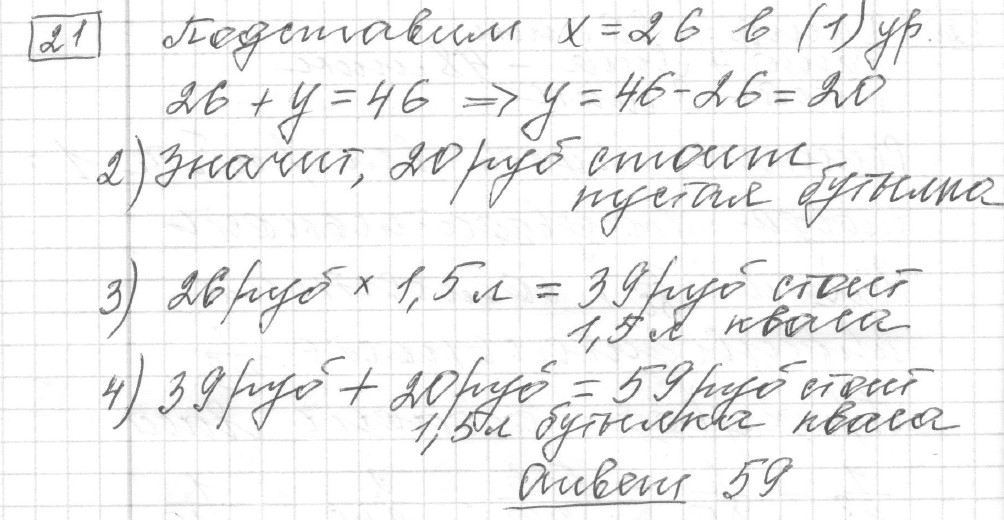 21 Подставим x = 26 в (1) ур.
26 + y = 46 => y = 46 - 26 = 20
2) Значит, 20 руб стоит
пустая бутылка
3) 26 руб × 1,5 л = 39 руб стоит
1,5 л кваса
4) 39 руб + 20 руб = 59 руб стоит
1,5 л бутылка кваса
Ответ 59